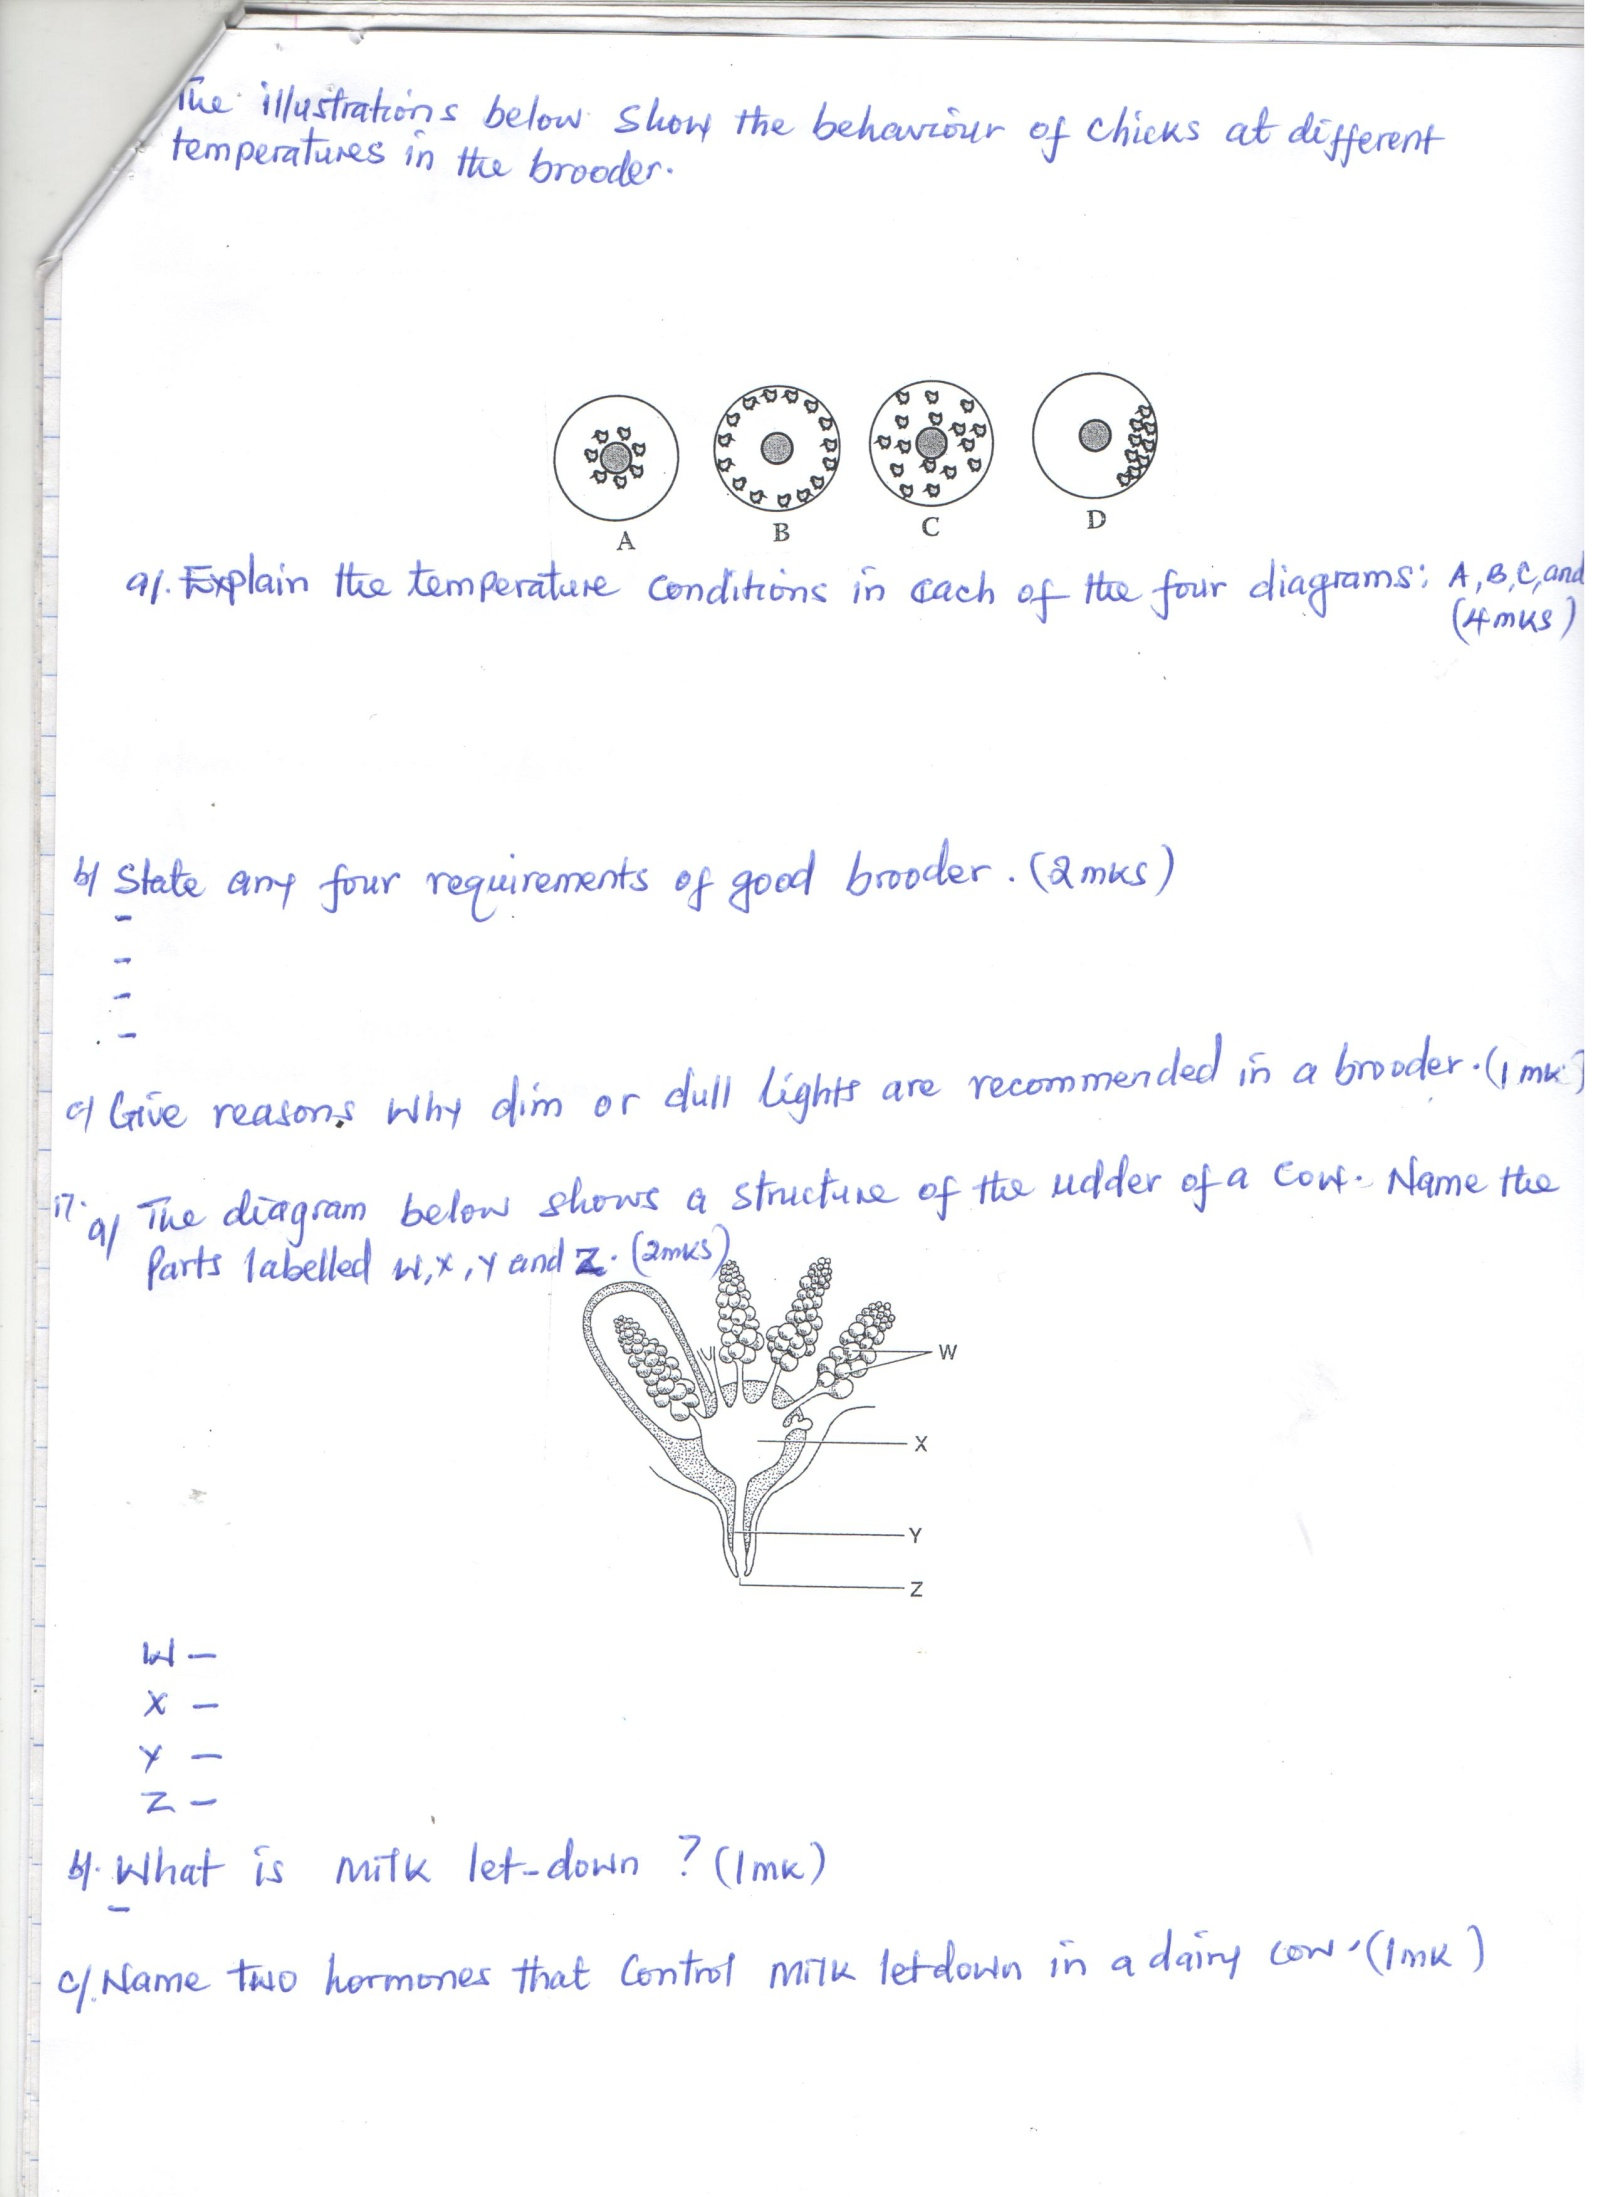 The illustrations below show the behaviour of chicks at different
temperatures in the brooder.
A
B
C
D
a/. Explain the temperature conditions in each of the four diagrams: A, B, C, and
(4mks)
b/ State any four requirements of good brooder. (2mks)
-
-
-
-
c/ Give reasons why dim or dull lights are recommended in a brooder. (1mk)
17. a/ The diagram below shows a structure of the udder of a cow. Name the
parts labelled W, X, Y and Z. (2mks)
W
X
Y
Z
W –
X –
Y –
Z –
b/. What is milk let-down ? (1mk)
-
c/. Name two hormones that control milk letdown in a dairy cow. (1mk)